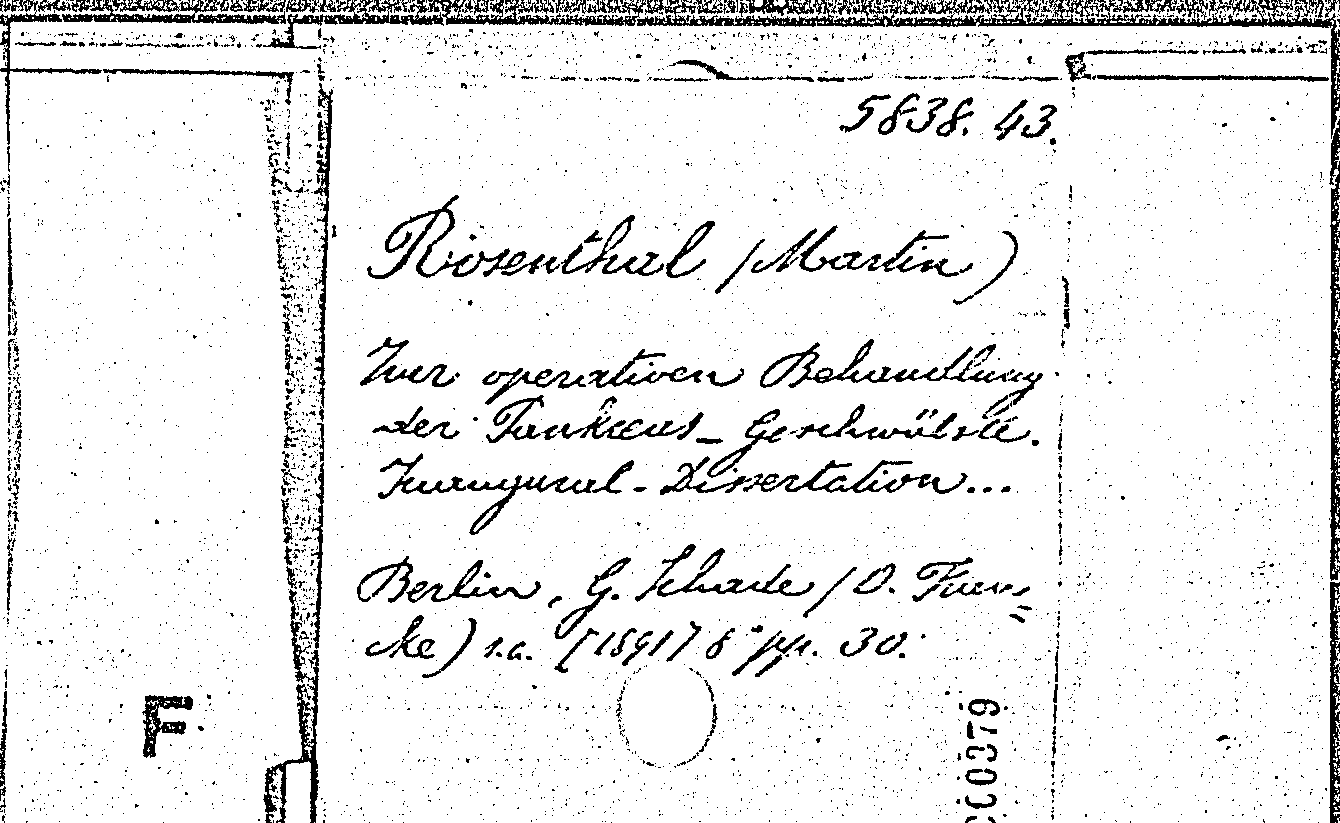 5838. 43.
Rosenthal (Martin)
Zur operativen Behandlung
der Pankreas-Geschwülste.
Inaugural-Dissertation...
Berlin, G. Schade (O. Fran=
cke) s.a. [1891] 8° pp. 30.
F
000079